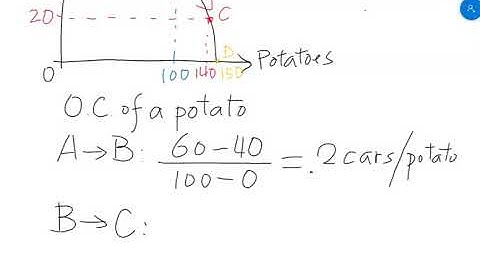 20 C
D
0 100 140 150 Potatoes
O.C. of a potato
A→B: 60-40/100-0 = .2 cars/potato
B→C: